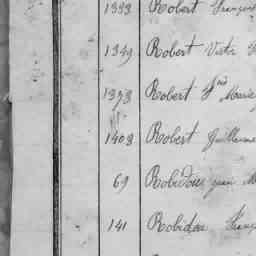 1333 Robert François
1349 Robert Victor
1373 Robert Fois Marie
1403 Robert Guillaume
69 Robidou Jean M
141 Robidou Franç